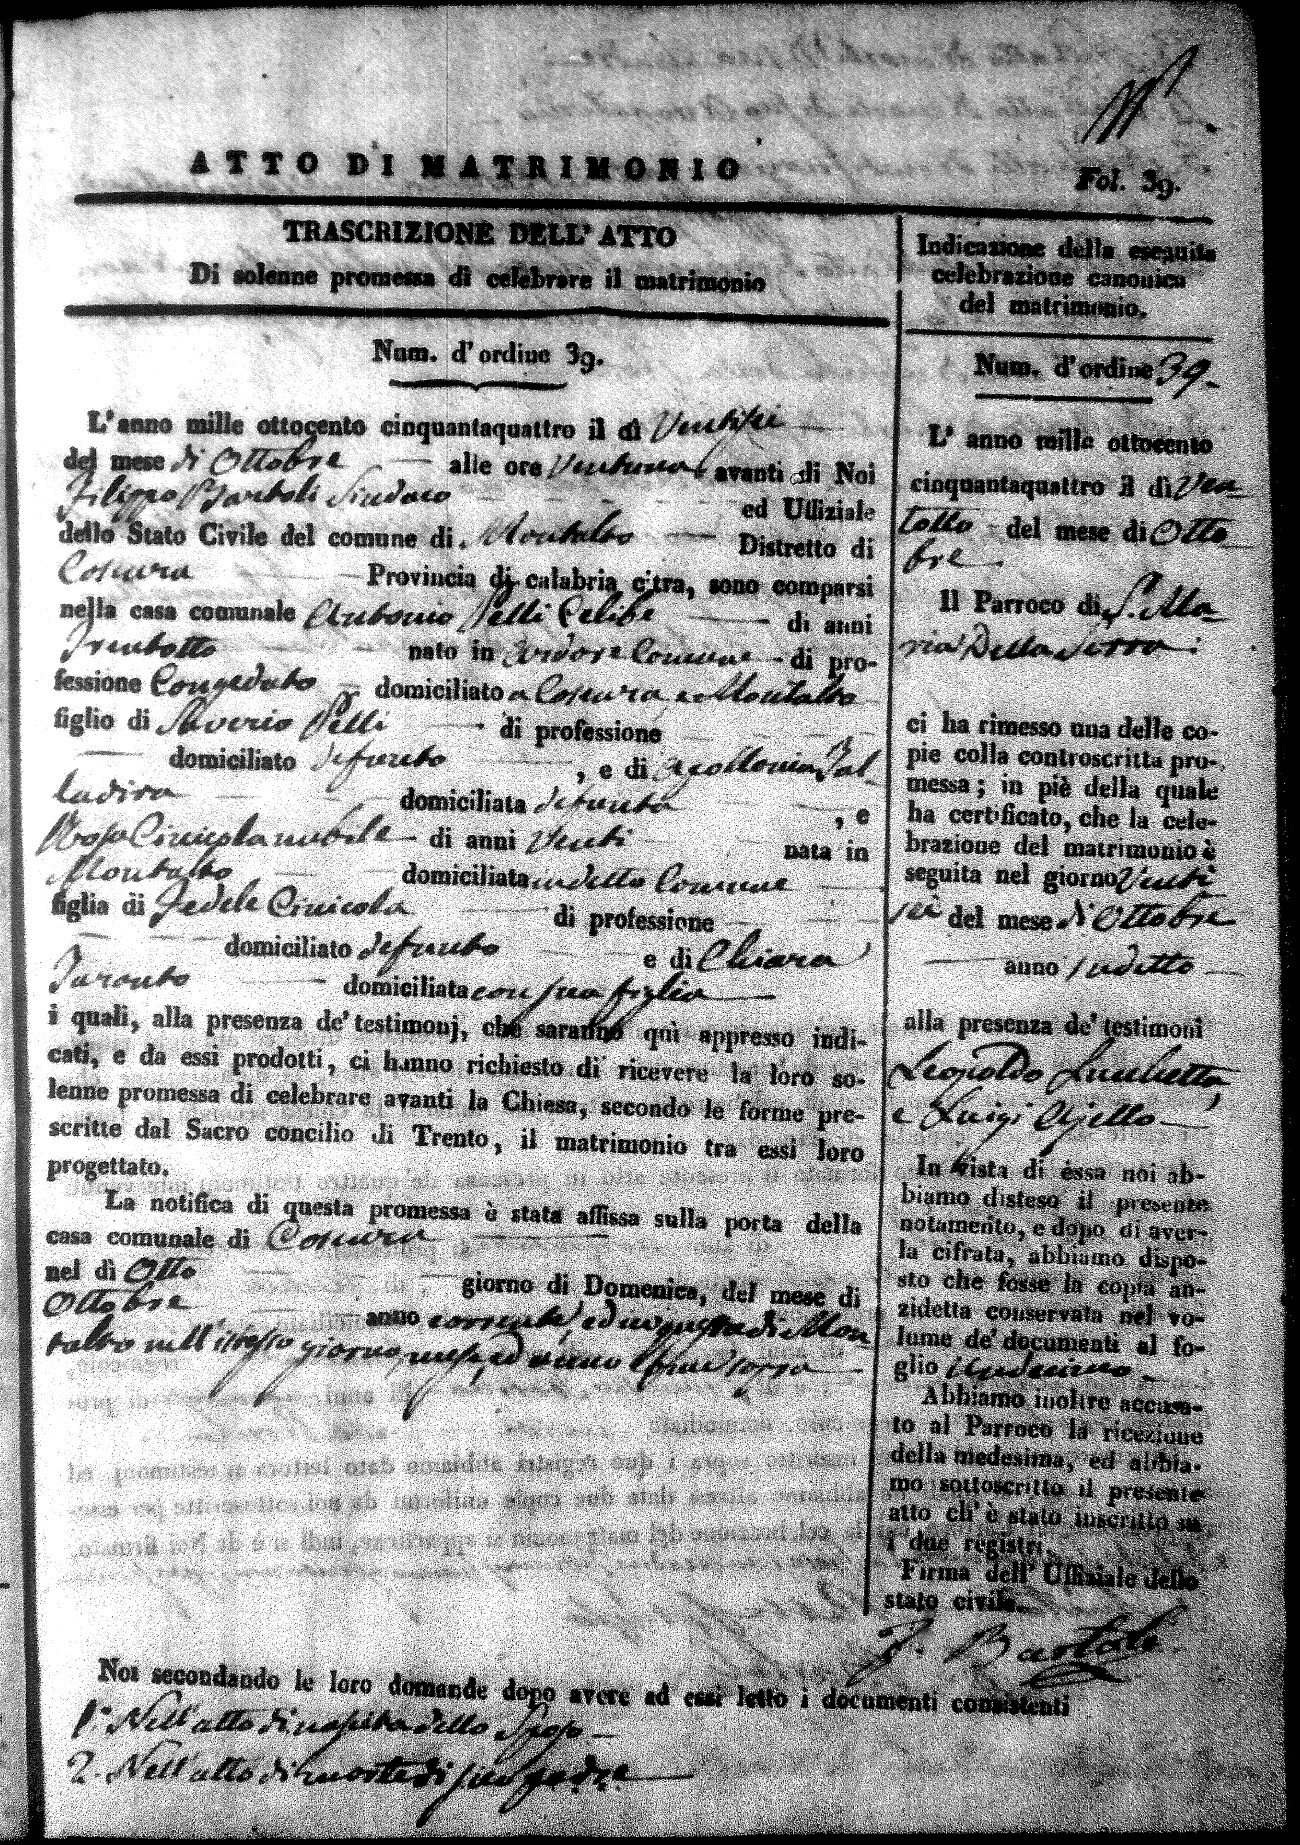 ATTO DI MATRIMONIO
Fol. 39.
TRASCRIZIONE DELL' ATTO
Di solenne promessa di celebrare il matrimonio
Num. d'ordine 39.
L'anno mille ottocento cinquantaquattro il dì Ventisei
del mese di Ottobre alle ore Ventuna avanti di Noi
Filippo Bartoli Sindaco ed Uffiziale
dello Stato Civile del comune di Montalto Distretto di
Cosenza Provincia di calabria citra, sono comparsi
nella casa comunale Antonio Pelli Celibe di anni
Trentotto nato in Comune di pro-
fessione Congedato domiciliato a Cosenza e Montalto
figlio di Saverio Pelli di professione
domiciliato defunto , e di Apollonia Bal-
domiciliata defunta , e
Rosa Cinicola nubile di anni Venti nata in
Montalto domiciliata in detto Comune
figlia di Fedele Cinicola di professione
domiciliato defunto e di Chiara
Turanto domiciliata con sua figlia
i quali, alla presenza de' testimonj, che saranno quì appresso indi-
cati, e da essi prodotti, ci hanno richiesto di ricevere la loro so-
lenne promessa di celebrare avanti la Chiesa, secondo le forme pre-
scritte dal Sacro concilio di Trento, il matrimonio tra essi loro
progettato.
La notifica di questa promessa è stata affissa sulla porta della
casa comunale di Cosenza
nel dì Otto giorno di Domenica, del mese di
Ottobre anno corrente, ed in questa di Mon
talto nell'istesso giorno, mese, ed anno
Noi secondando le loro domande dopo avere ad essi letto i documenti consistenti
1.° Nell'atto di nascita dello Sposo
2. Nell'atto di morte di suo padre
Indicazione della eseguita
celebrazione canonica
del matrimonio.
Num. d'ordine 39.
L' anno mille ottocento
cinquantaquattro il dì Ven-
totto del mese di Otto
bre
Il Parroco di S. Ma-
ria Della Serra
ci ha rimesso una delle co-
pie colla controscritta pro-
messa; in piè della quale
ha certificato, che la cele-
brazione del matrimonio è
seguita nel giorno Venti
sei del mese di Ottobre
anno sudetto
alla presenza de' testimoni
Leopoldo Lucchetta,
e Luigi Ajello
In vista di essa noi ab-
biamo disteso il presente
notamento, e dopo di aver-
la cifrata, abbiamo dispo-
sto che fosse la copia an-
zidetta conservata nel vo-
lume de' documenti al fo-
glio undecimo
Abbiamo inoltre accusa-
to al Parroco la ricezione
della medesima, ed abbia-
mo sottoscritto il presente
atto ch'è stato inscritto su
i due registri.
Firma dell' Uffiziale dello
stato civile.
F. Bartoli